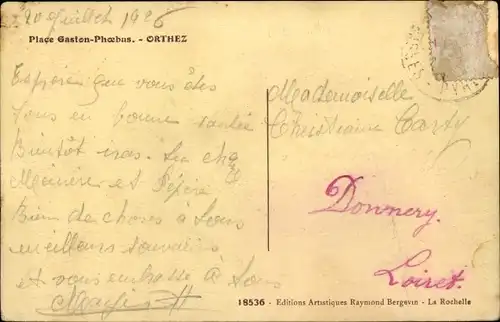 20 Juillet 1926
Place Gaston-Phœbus. - ORTHEZ
Espère que vous êtes
tous en bonne santée
Bientôt iras
Mémère et Pépère
Bien de choses à tous
meilleurs souvenirs
et vous embrasse à tous
Mademoiselle
Christiane Carty
Donnery.
Loiret.
18536 - Editions Artistiques Raymond Bergevin - La Rochelle